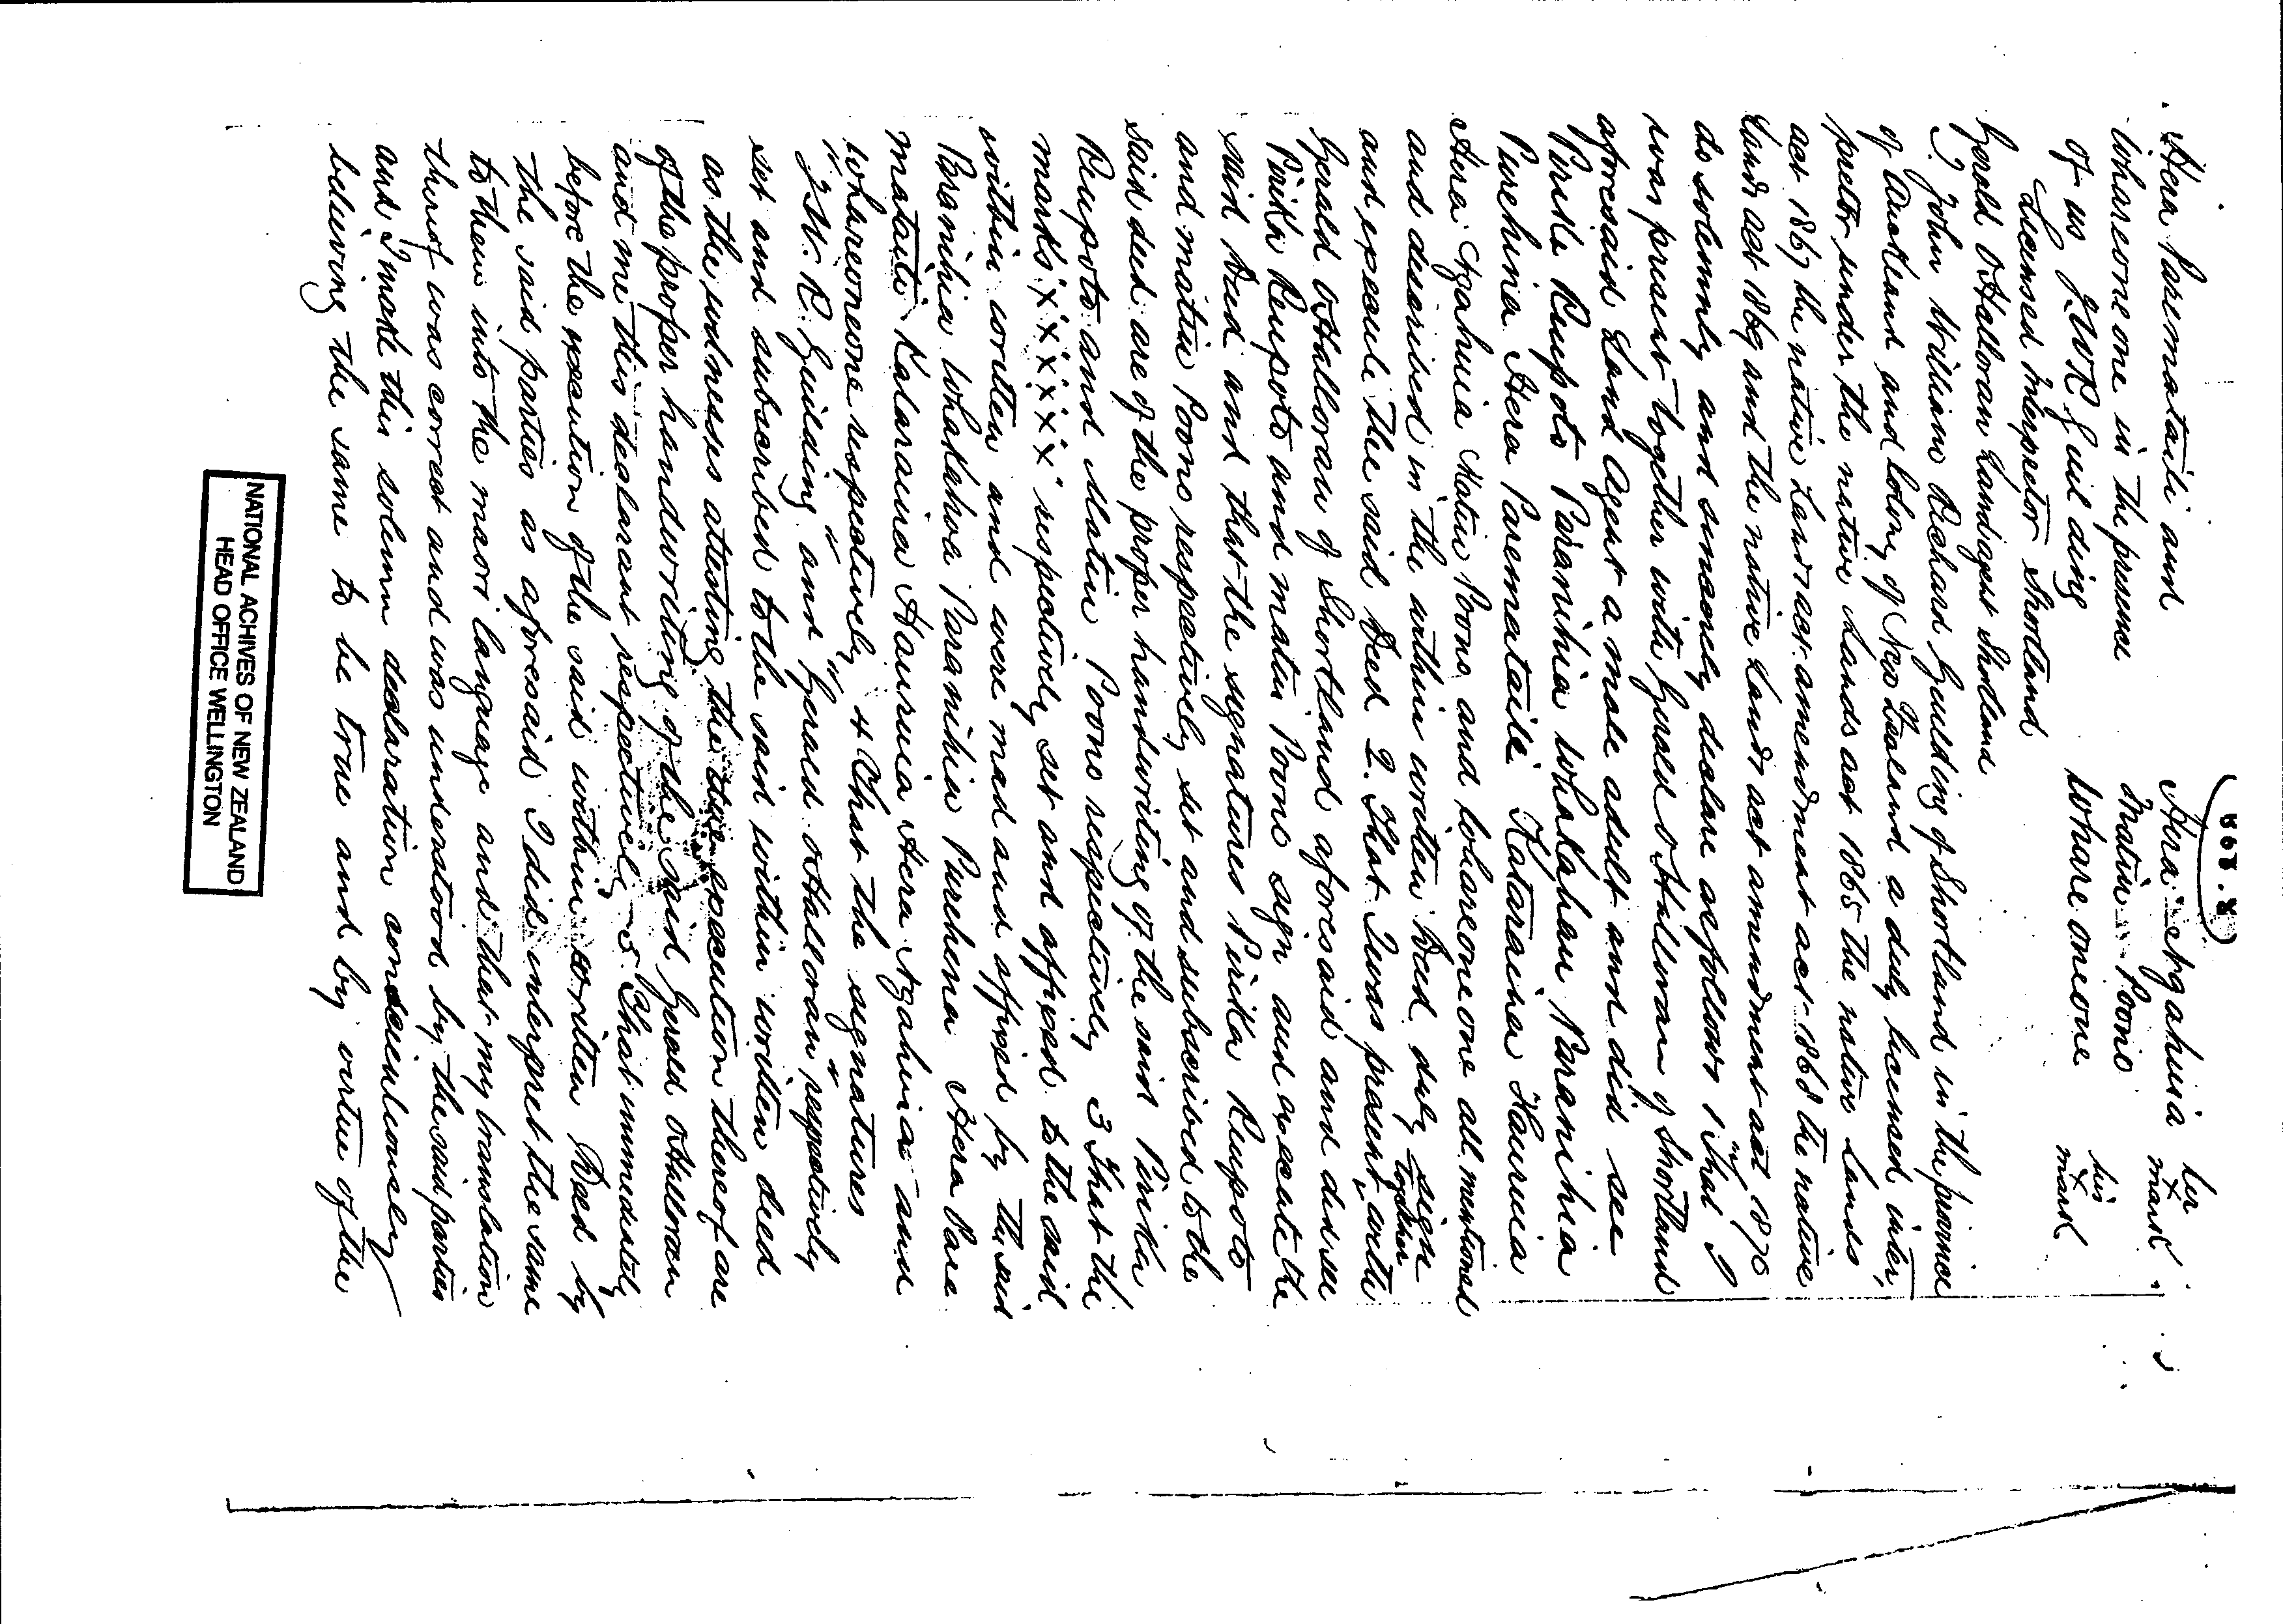 R. 198
Hera Paremataiti and Hera Ngahuia her x mark
Whareoneone in the presence Matiu Poono
of us J W R Guilding Whareoneone his x mark
Licensed Interpretor Shortland
Gerald O'Halloran Land agent Shortland
I John William Richard Guilding of Shortland in the province
of Auckland and Colony of New Zealand a duly licensed inter,
pretor under the native Lands act 1865 the native Lands
act 1867 the native Lands act amendment act 1868 the native
Lands act 1869 and the native Lands act amendment act 1870
do solemnly and sincerely declare as follows 1 That I
was present together with Gerald O'Halloran of Shortland
aforesaid Land Agent a male adult and did see
Pirika Reupoto Paranihia Whakahau Paranihia
Purehina Hera Paremataiti Kataraina Hauruia
Hera Ngahuia Matiu Poono and Whareoneone all mentioned
and described in the within written Deed duly sign
and execute the said Deed 2. That I was present together with
Gerald O'Halloran of Shortland aforesaid and did see
Pirika Reupoto and Matiu Poono sign and execute the
said Deed and that the signatures Pirika Reupoto
and Matiu Poono respectively set and subscribed to the
said deed are of the proper handwriting of the said Pirika
Reupoto and Matiu Poono respectively 3 That the
marks x x x x x x respectively set and affixed to the said
within written and were made and affixed by the said
Paranihia Whakahoa Paranihia Purehina Hera Pare
mataiti Kataraina Hauruia Hera Ngahuia and
Whareoneone respectively 4 That the signatures
"J W. R. Guilding" and "Gerald O'Halloran" respectively
set and subscribed to the said within written deed
as the witnesses attesting the due execution thereof are
of the proper handwriting of the said Gerald O'Halloran
and me this declarant respectively 5 That immediately
before the execution of the said within written Deed by
the said parties as aforesaid I did interpret the same
to them into the maori language and that my translation
thereof was correct and was understood by the said parties
and I make this solemn declaration conscienciously
believing the same to be true and by virtue of the
NATIONAL ACHIVES OF NEW ZEALAND
HEAD OFFICE WELLINGTON